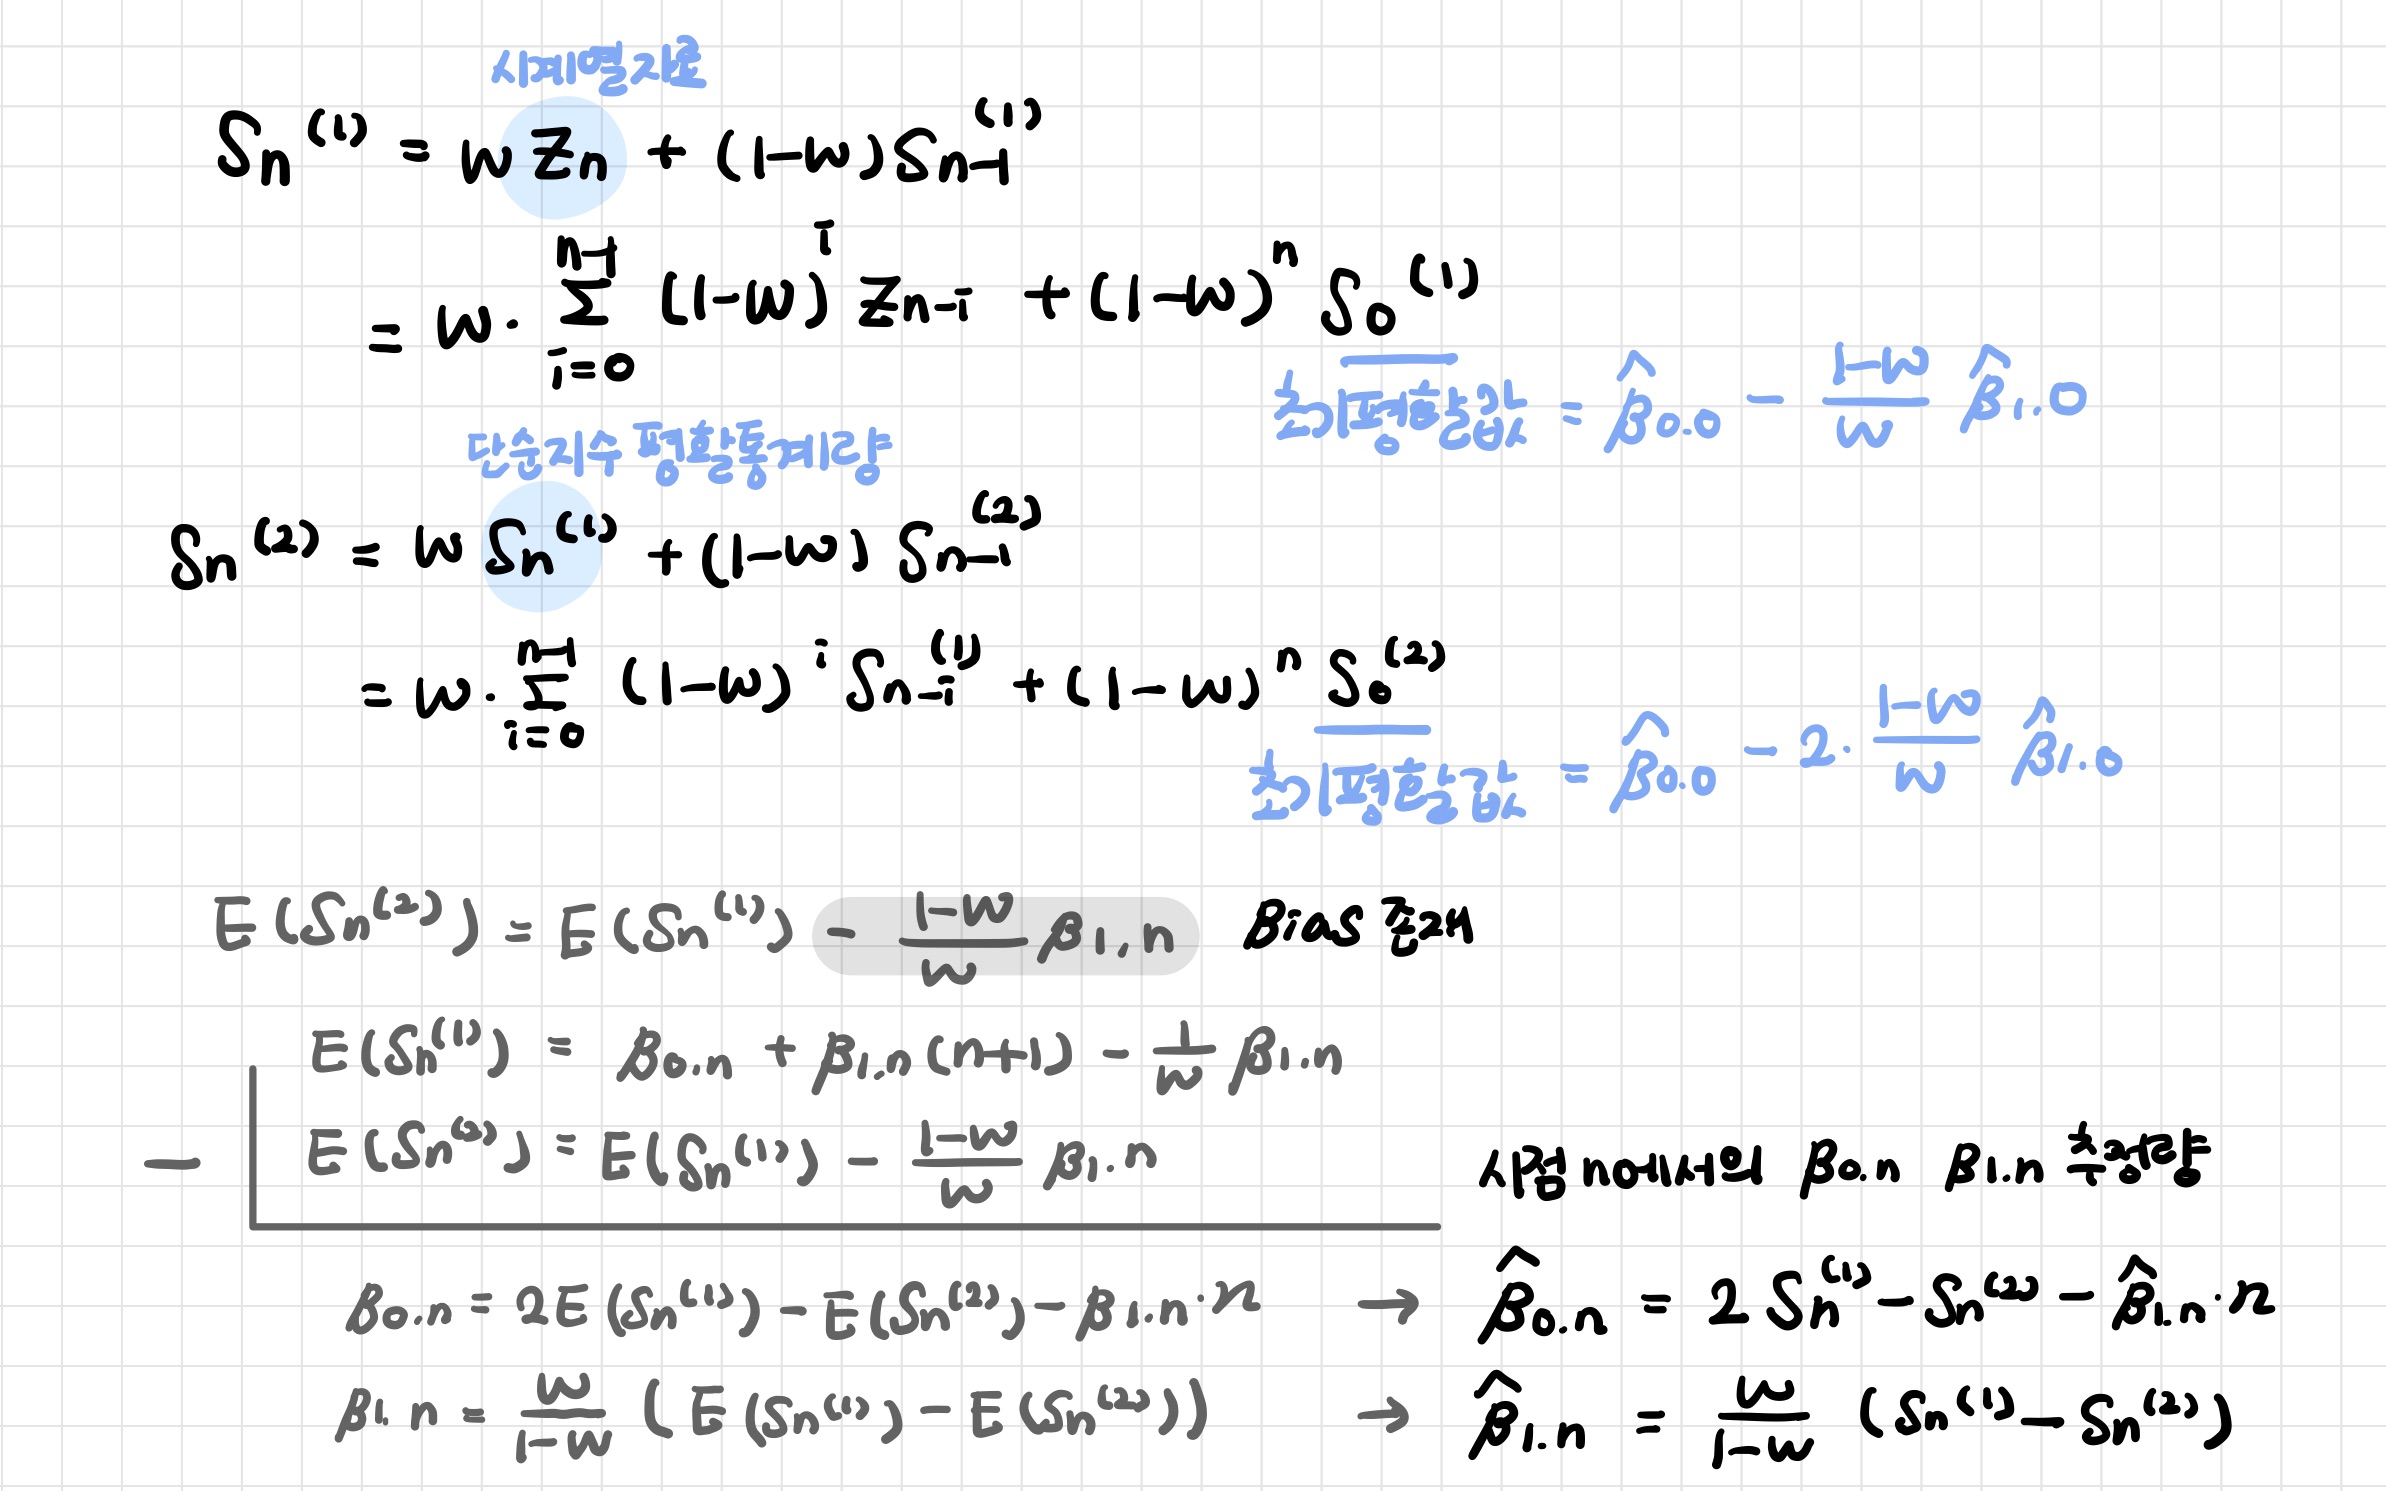 시계열자료
Sn⁽¹⁾ = w Zn + (1-w) Sn-1⁽¹⁾
= w · Σ_{i=0}^{n-1} (1-w)^i Zn-i + (1-w)^n S0⁽¹⁾
초기평활값 = β̂0.0 - (1-w)/w β̂1.0
단순지수 평활통계량
Sn⁽²⁾ = w Sn⁽¹⁾ + (1-w) Sn-1⁽²⁾
= w · Σ_{i=0}^{n-1} (1-w)^i Sn-i⁽¹⁾ + (1-w)^n S0⁽²⁾
초기평활값 = β̂0.0 - 2 · (1-w)/w β̂1.0
E(Sn⁽²⁾) = E(Sn⁽¹⁾) - (1-w)/w β1,n Bias 존재
E(Sn⁽¹⁾) = β0.n + β1.n (n+1) - 1/w β1.n
- E(Sn⁽²⁾) = E(Sn⁽¹⁾) - (1-w)/w β1.n
시점 n에서의 β0.n β1.n 추정량
β0.n = 2E(Sn⁽¹⁾) - E(Sn⁽²⁾) - β1.n · n → β̂0.n = 2 Sn⁽¹⁾ - Sn⁽²⁾ - β̂1.n · n
β1.n = w/(1-w) (E(Sn⁽¹⁾) - E(Sn⁽²⁾)) → β̂1.n = w/(1-w) (Sn⁽¹⁾ - Sn⁽²⁾)